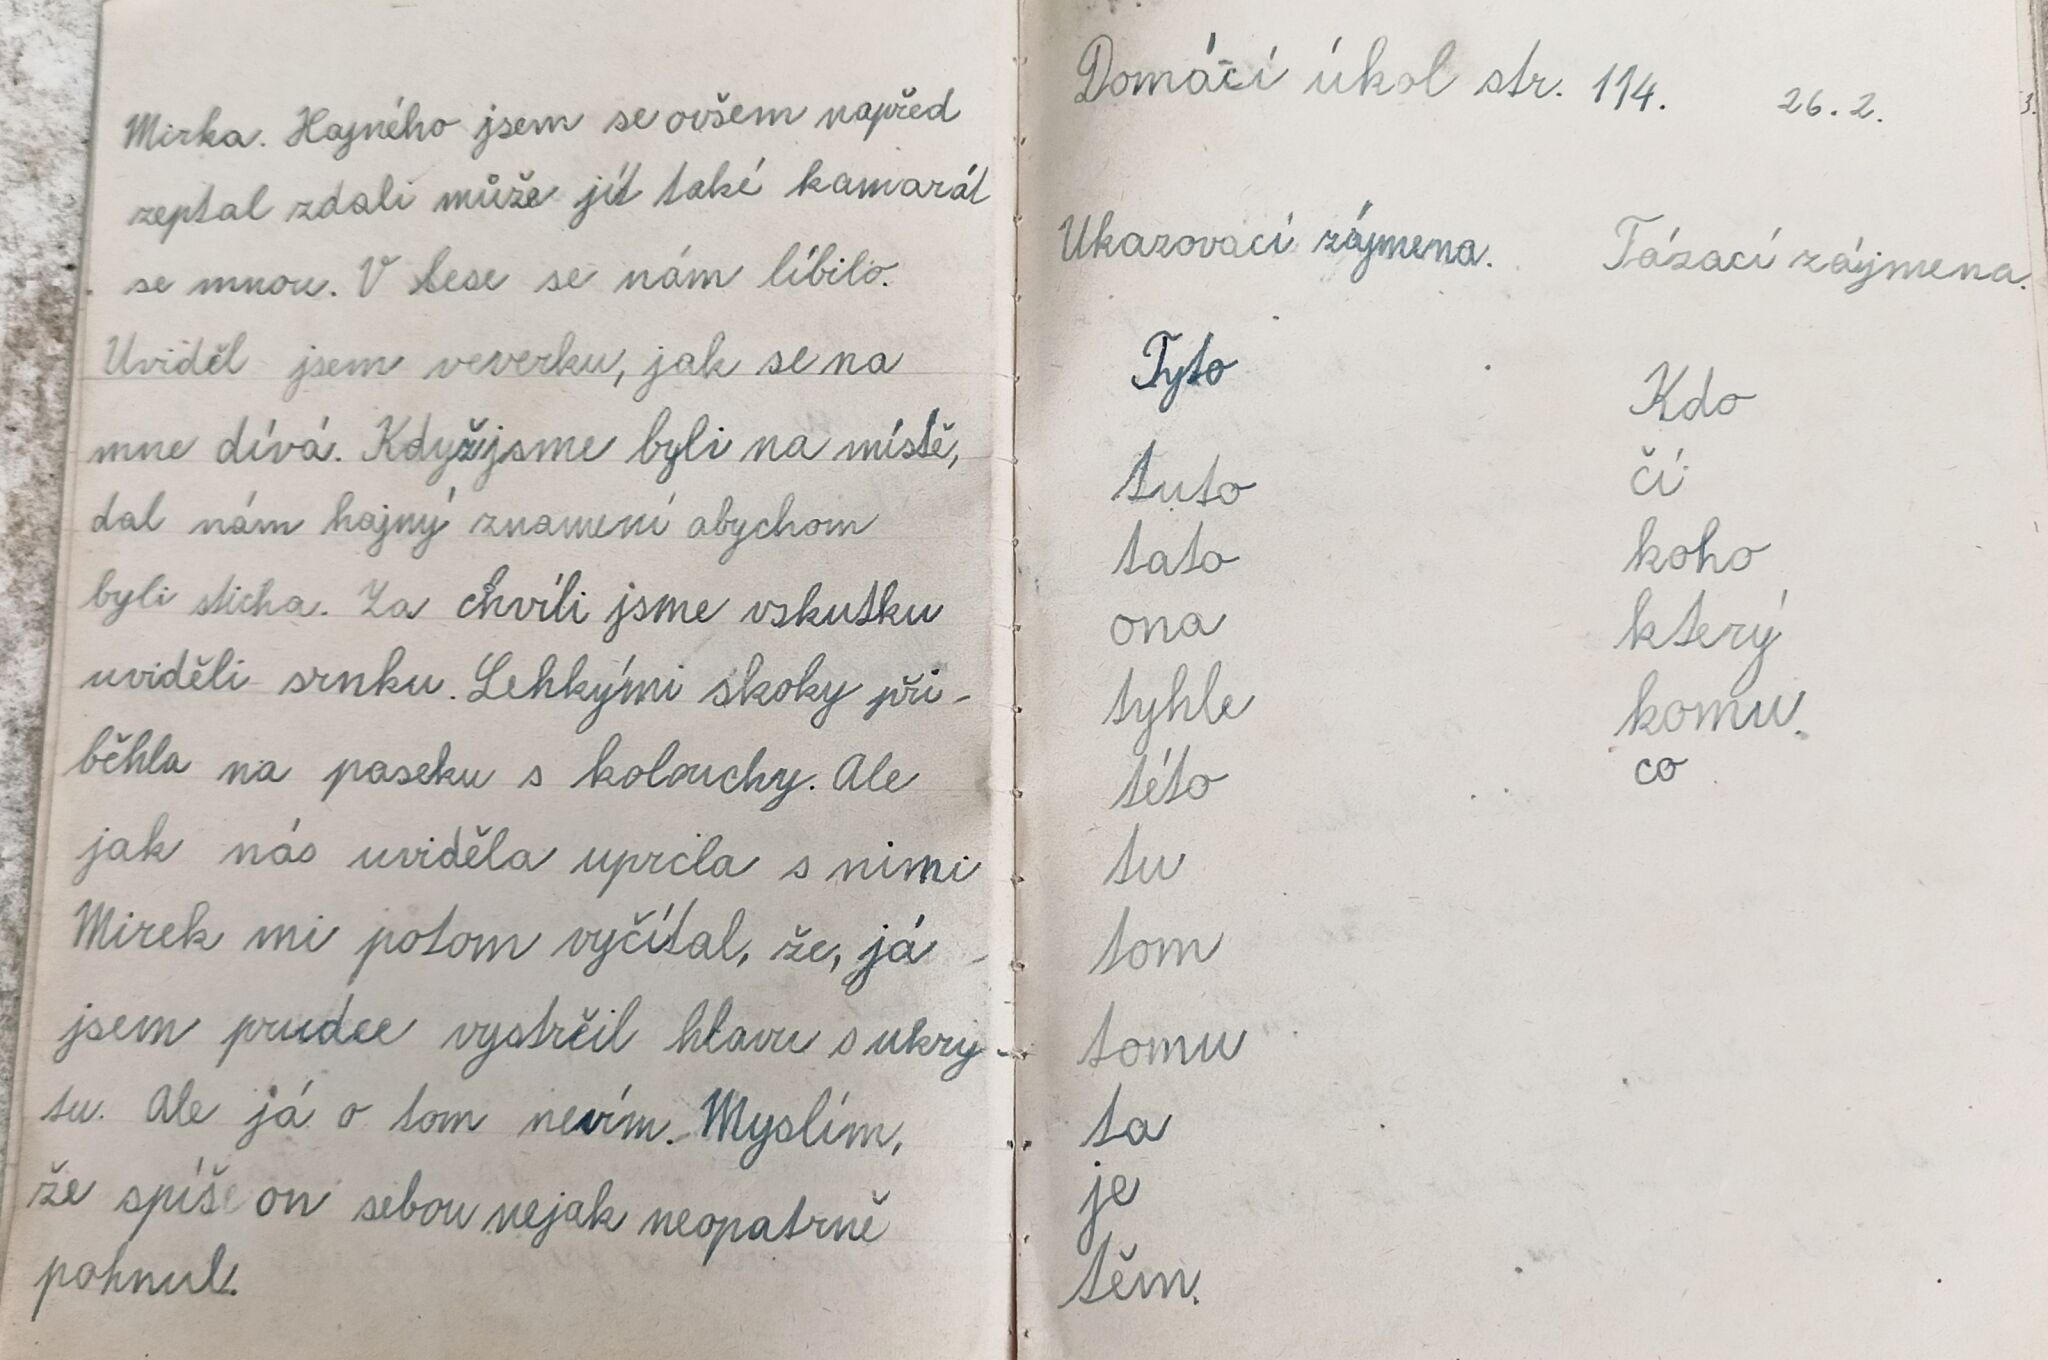 Mirka. Hajného jsem se ovšem napřed
zeptal zdali může jít také kamarát
se mnou. V lese se nám líbilo.
Uviděl jsem veverku, jak se na
mne dívá. Když jsme byli na místě,
dal nám hajný znamení abychom
byli sticha. Za chvíli jsme vskutku
uviděli srnku. Lehkými skoky při-
běhla na paseku s kolouchy. Ale
jak nás uviděla uprcla s nimi
Mirek mi potom vyčítal, že, já
jsem prudce vystrčil hlavu s ukry-
tu. Ale já o tom nevím. Myslím,
že spíše on sebou nejak neopatrně
pohnul.
Domácí úkol str. 114. 26. 2.
Ukazovací zájmena. Tázací zájmena.
Tyto
tuto
tato
ona
tyhle
této
tu
tom
tomu
ta
je
těm.
Kdo
čí
koho
který
komu.
co